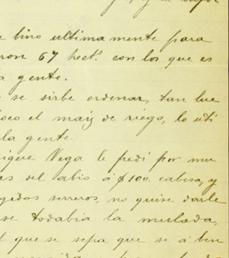 bino ultimamente para
ron 67 hect. con los que es
a gente.
se sirbe ordenar, tan lue
oco el maiz de riego, lo uti
la gente
igue Vega le pedi por mu
es sel abio á $100. cabesa, y
gedos serreros, no quise darle
se todabia la mulada,
l que se sepa que se á ben